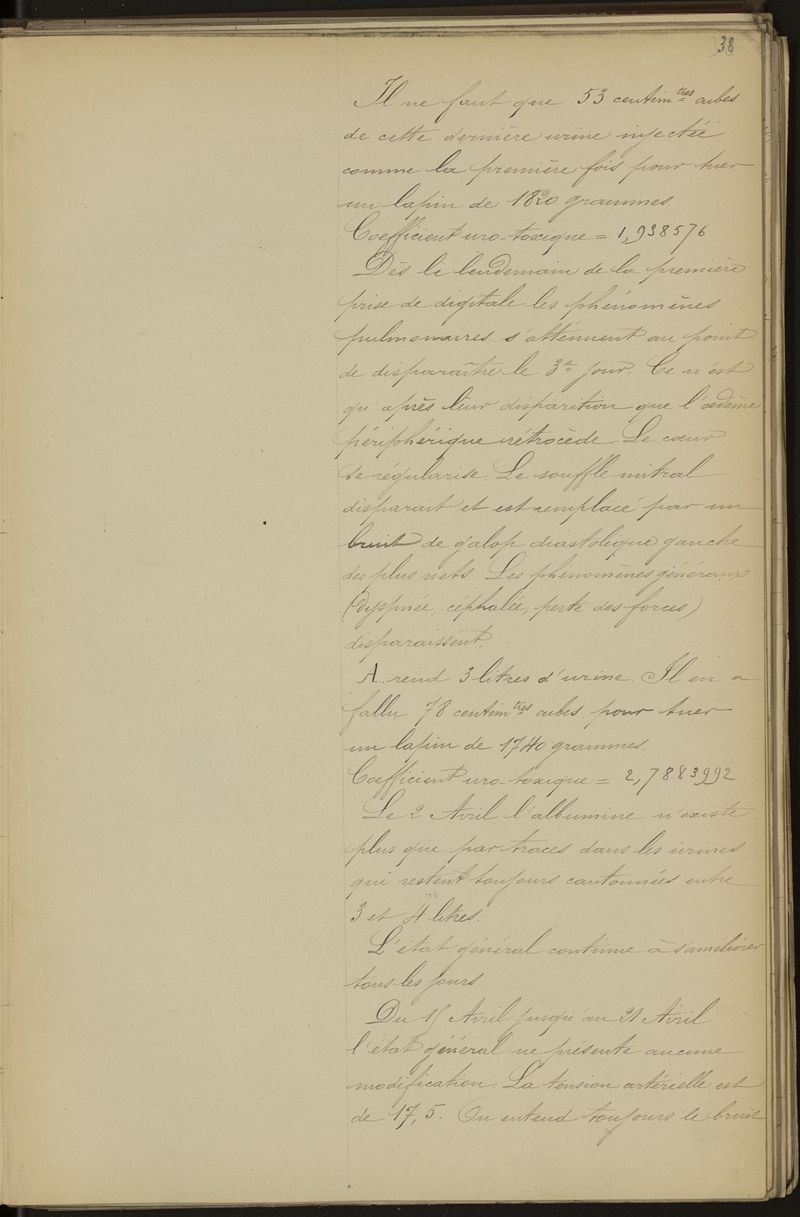 38
Il ne faut que 53 centim.tres cubes
de cette dernière urine injectée
comme la première fois pour tuer
un lapin de 1820 grammes.
Coefficient uro-toxique = 1,938576
Dès le lendemain de la première
prise de digitale les phénomènes
pulmonaires s'atténuent au point
de disparaître le 3e jour. Ce n'est
qu'après leur disparition que l'œdème
périphérique rétrocède. Le cœur
se régularise. Le souffle mitral
disparait et est remplacé par un
bruit de galop diastolique gauche
des plus nets. Les phénomènes généraux
(dyspnée, céphalée, perte des forces)
disparaissent.
A. rend 3 litres d'urine. Il en a
fallu 78 centim.tres cubes pour tuer
un lapin de 1740 grammes.
Coefficient uro-toxique = 2,7883992
Le 2 Avril l'albumine n'existe
plus que par traces dans les urines
qui restent toujours cantonnées entre
3 et 4 litres.
L'état général continue à s'améliorer
tous les jours.
Du 15 Avril jusqu'au 21 Avril
l'état général ne présente aucune
modification. La tension artérielle est
de 17,5. On entend toujours le bruit